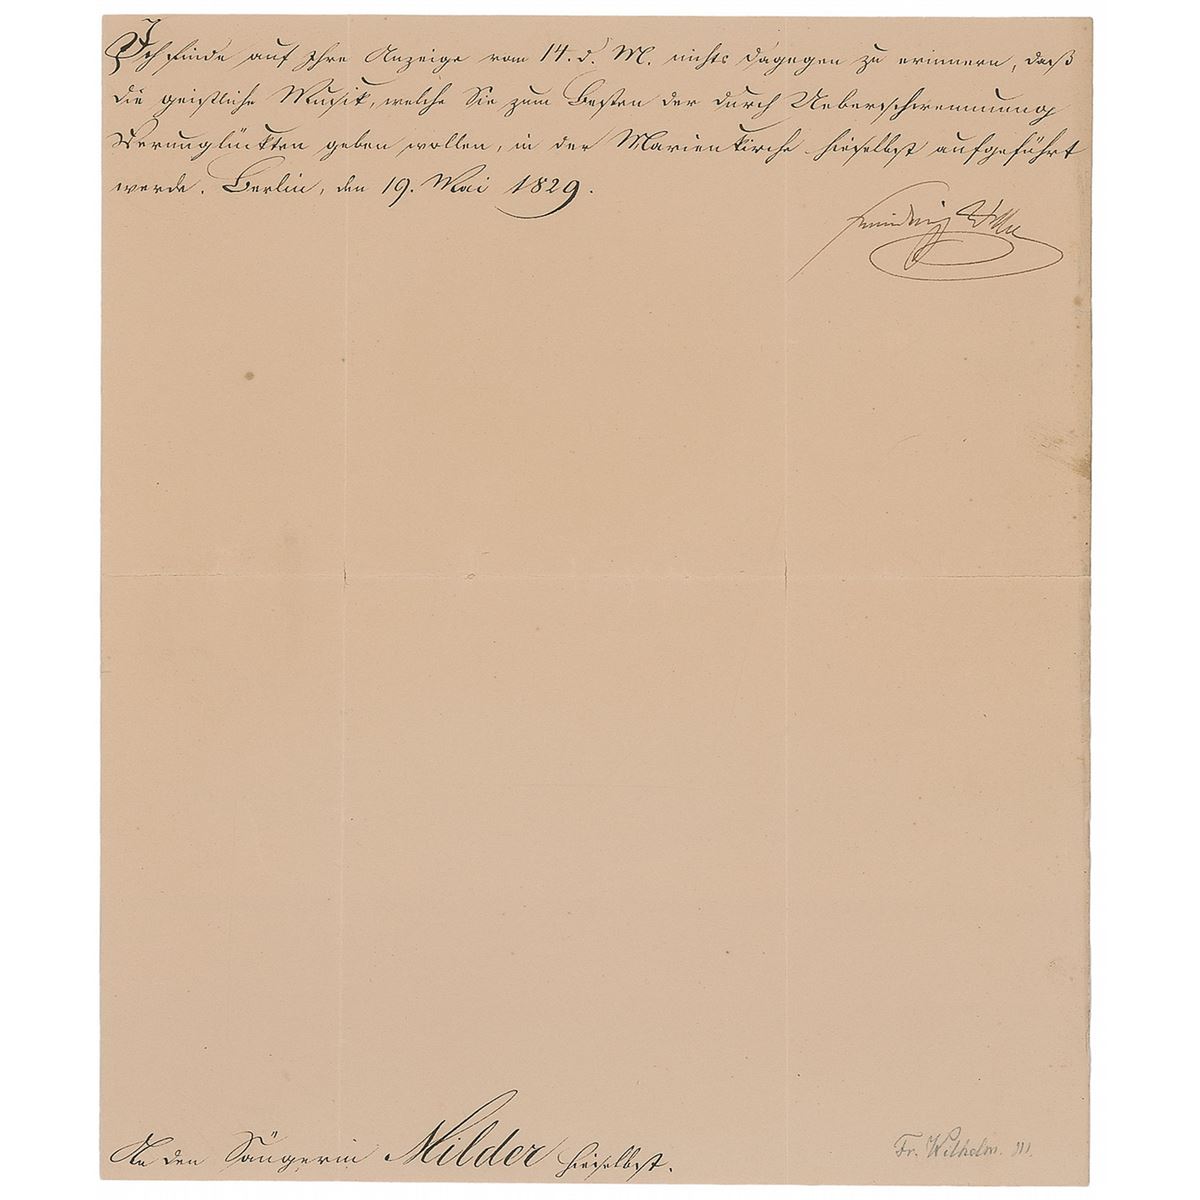 Ich finde auf Ihre Anzeige vom 14. d. M. nichts dagegen zu erinnern, daß
die geistliche Musik, welche Sie zum Besten der durch Ueberschwemmung
Verunglückten geben wollen, in der Marienkirche hieselbst aufgeführt
werde. Berlin, den 19. Mai 1829.
Friedrich Wilhelm
An den Sängerin Milder hieselbst.
Fr. Wilhelm. III.